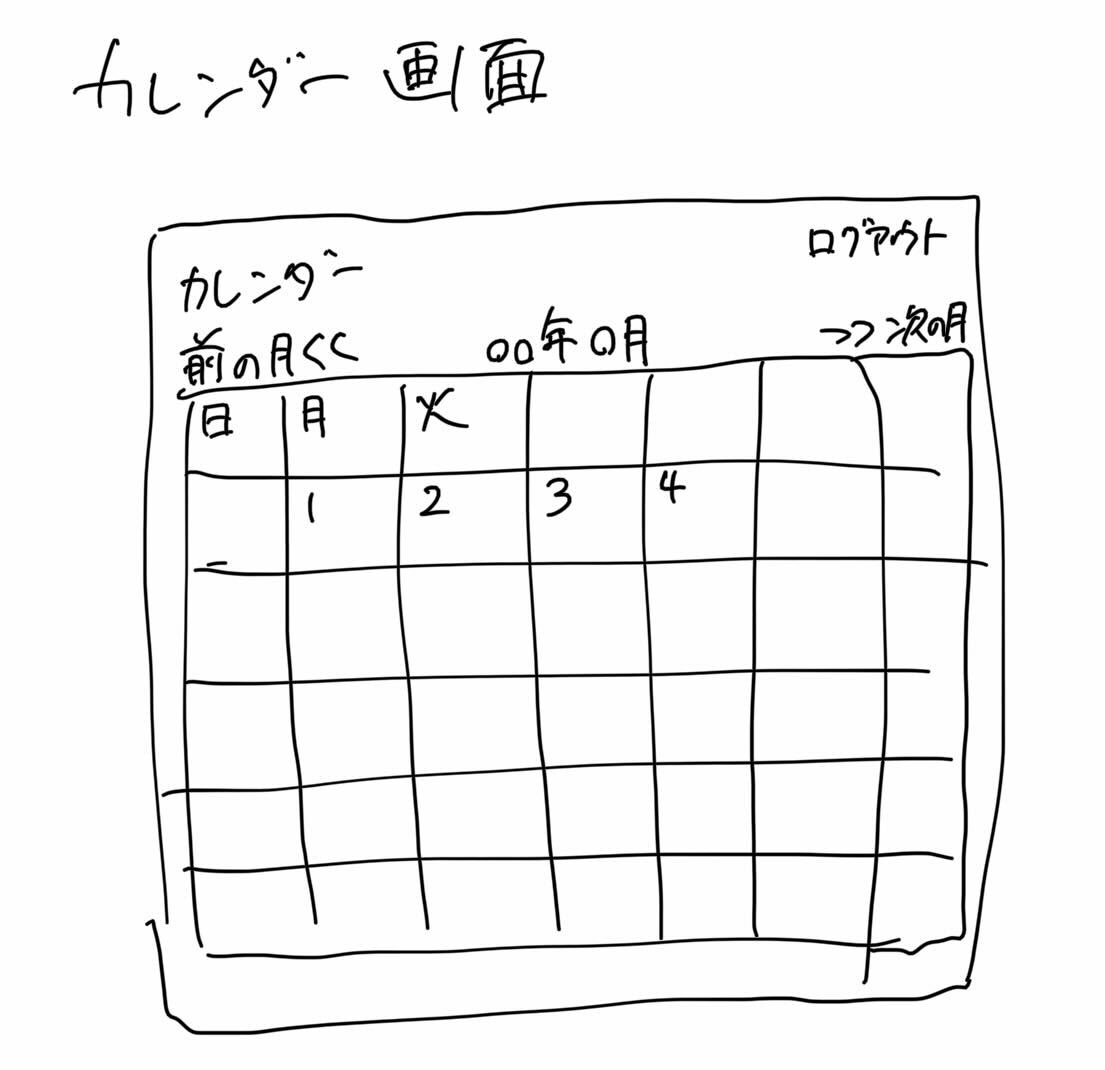 カレンダー画面
ログアウト
カレンダー
前の月<< 〇〇年〇月 >>次の月
日 月 火
1 2 3 4